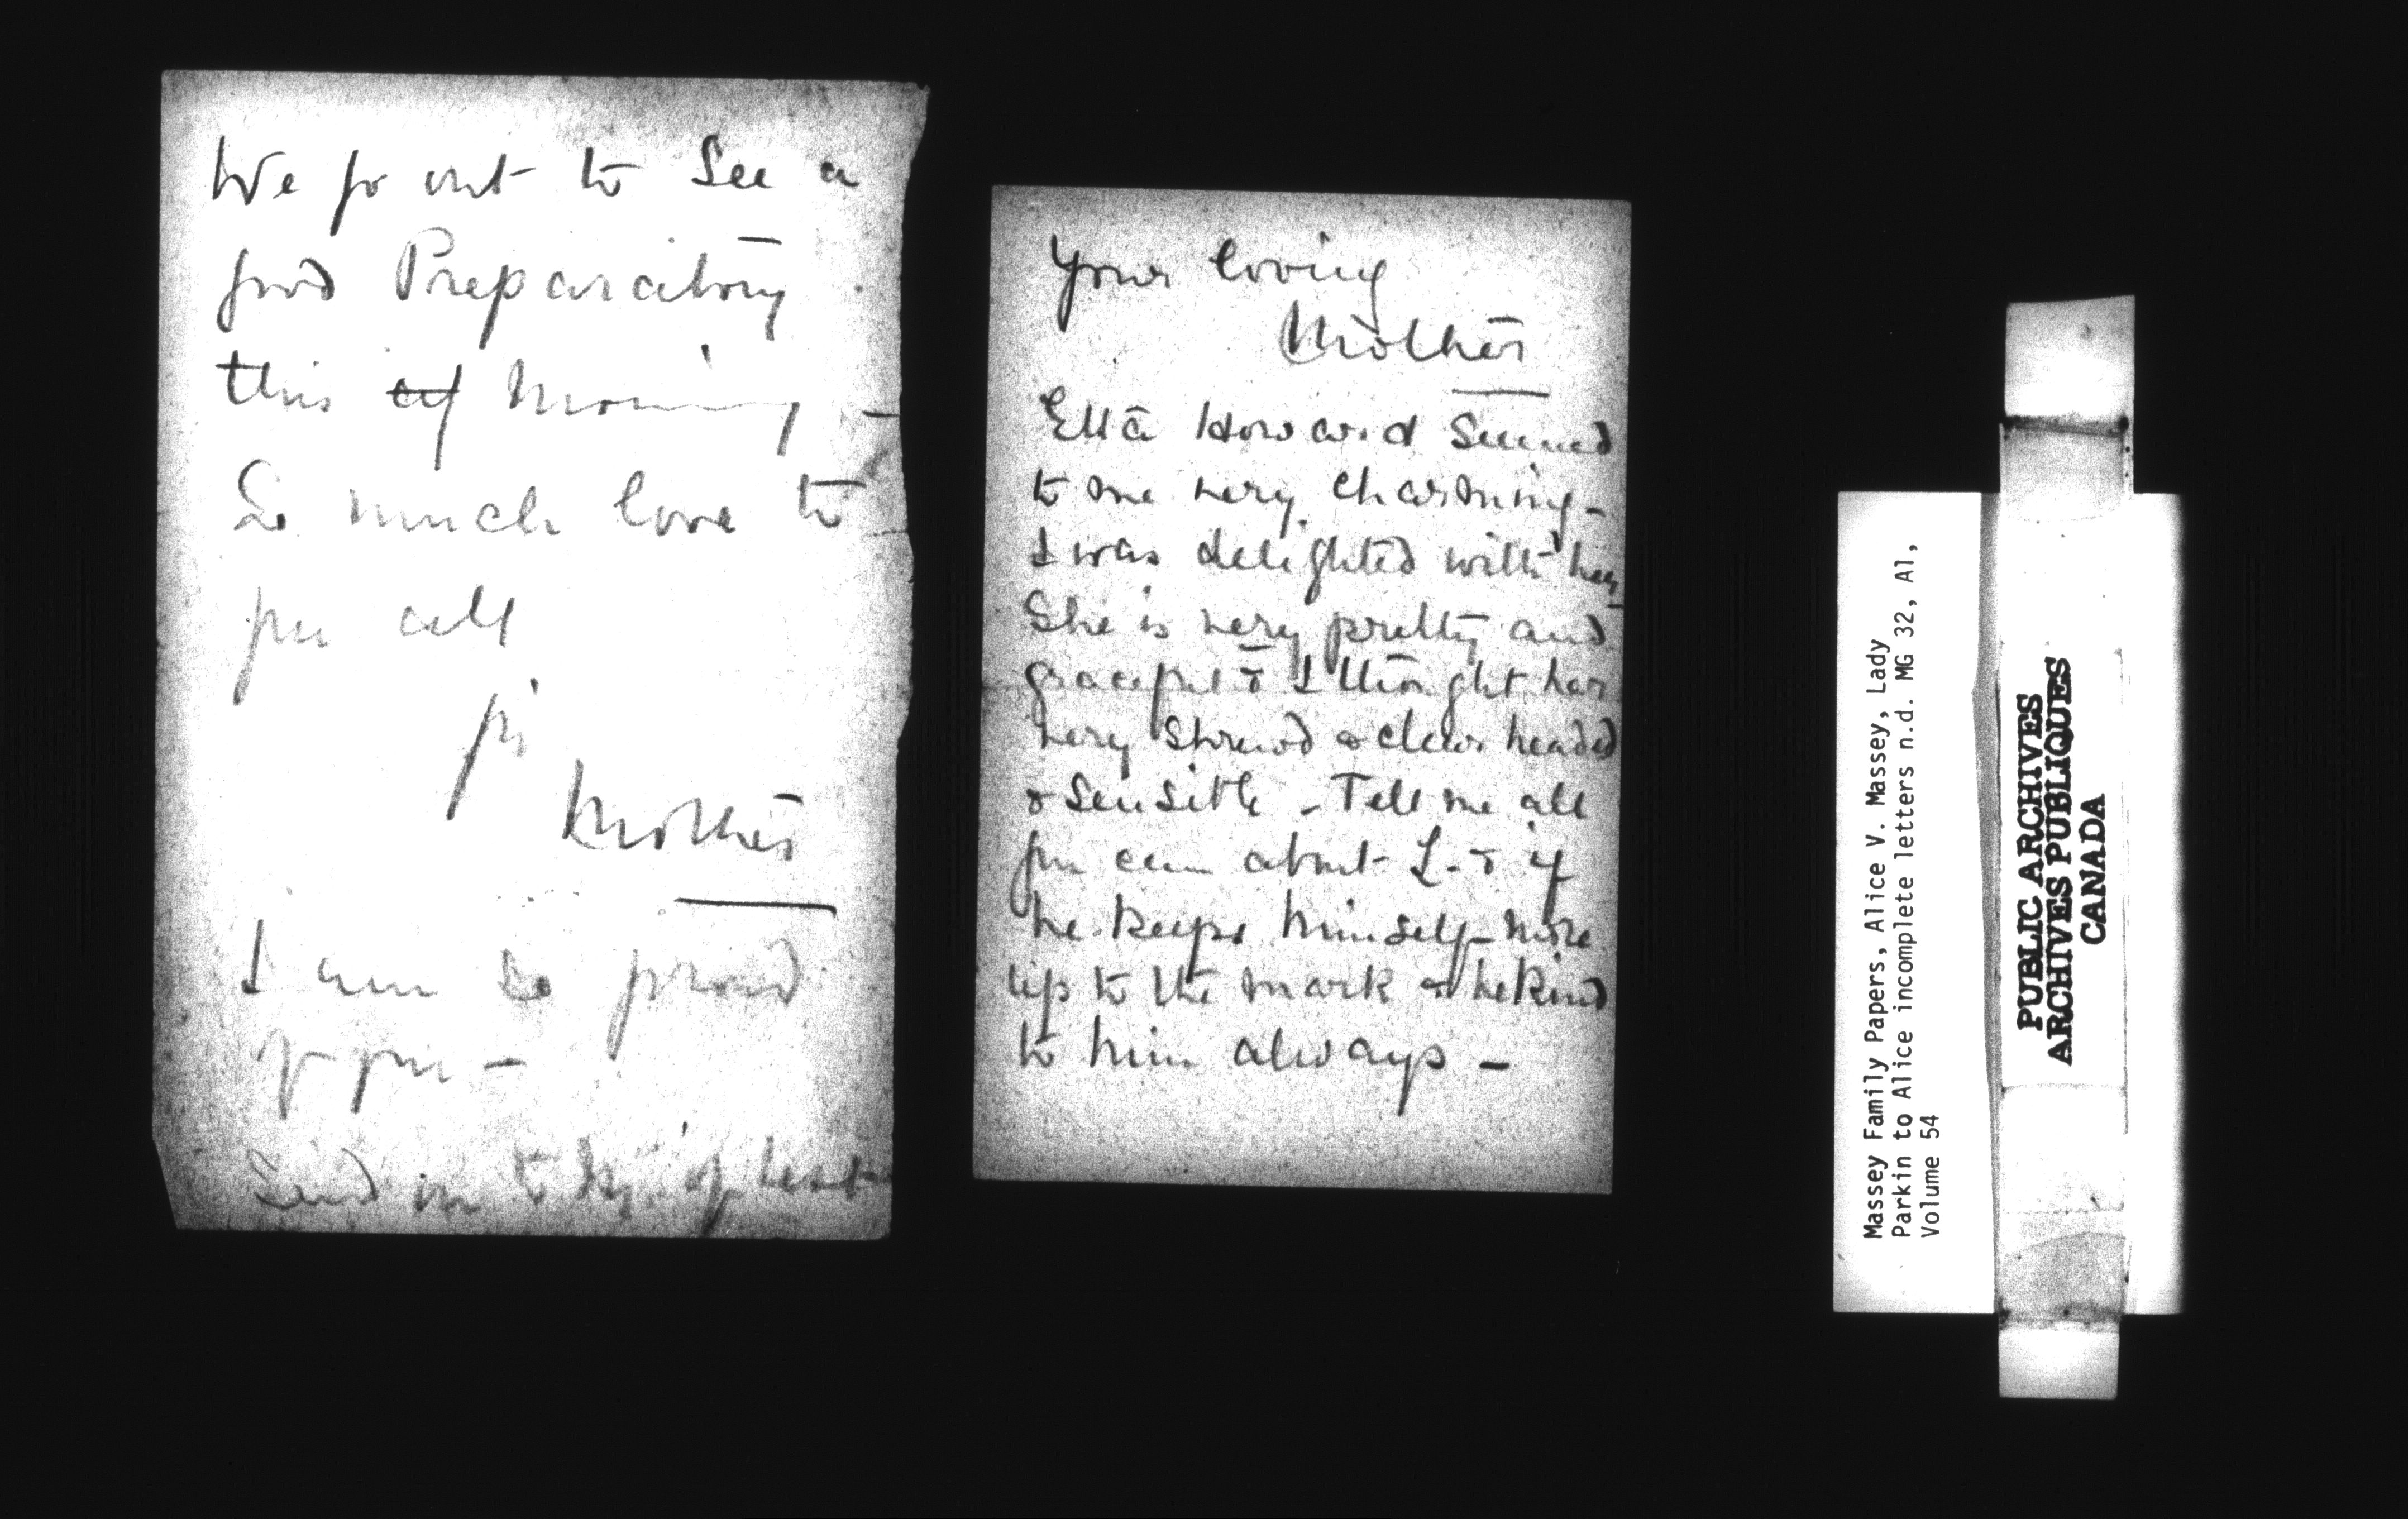 We go out to see a
good Preparatory
this morning -
So much love to
you all
Yr
Mother
I am so proud
of you -
Send on to
Your loving
Mother
Etta Howard seemed
to me very charming -
I was delighted with her
She is very pretty and
graceful & I thought her
very shrewd & clear headed
& sensible - Tell me all
you can about L. & if
he keeps himself more
up to the mark & be kind
to him always -
Massey Family Papers, Alice V. Massey, Lady
Parkin to Alice incomplete letters n.d. MG 32, A1,
Volume 54
PUBLIC ARCHIVES
ARCHIVES PUBLIQUES
CANADA